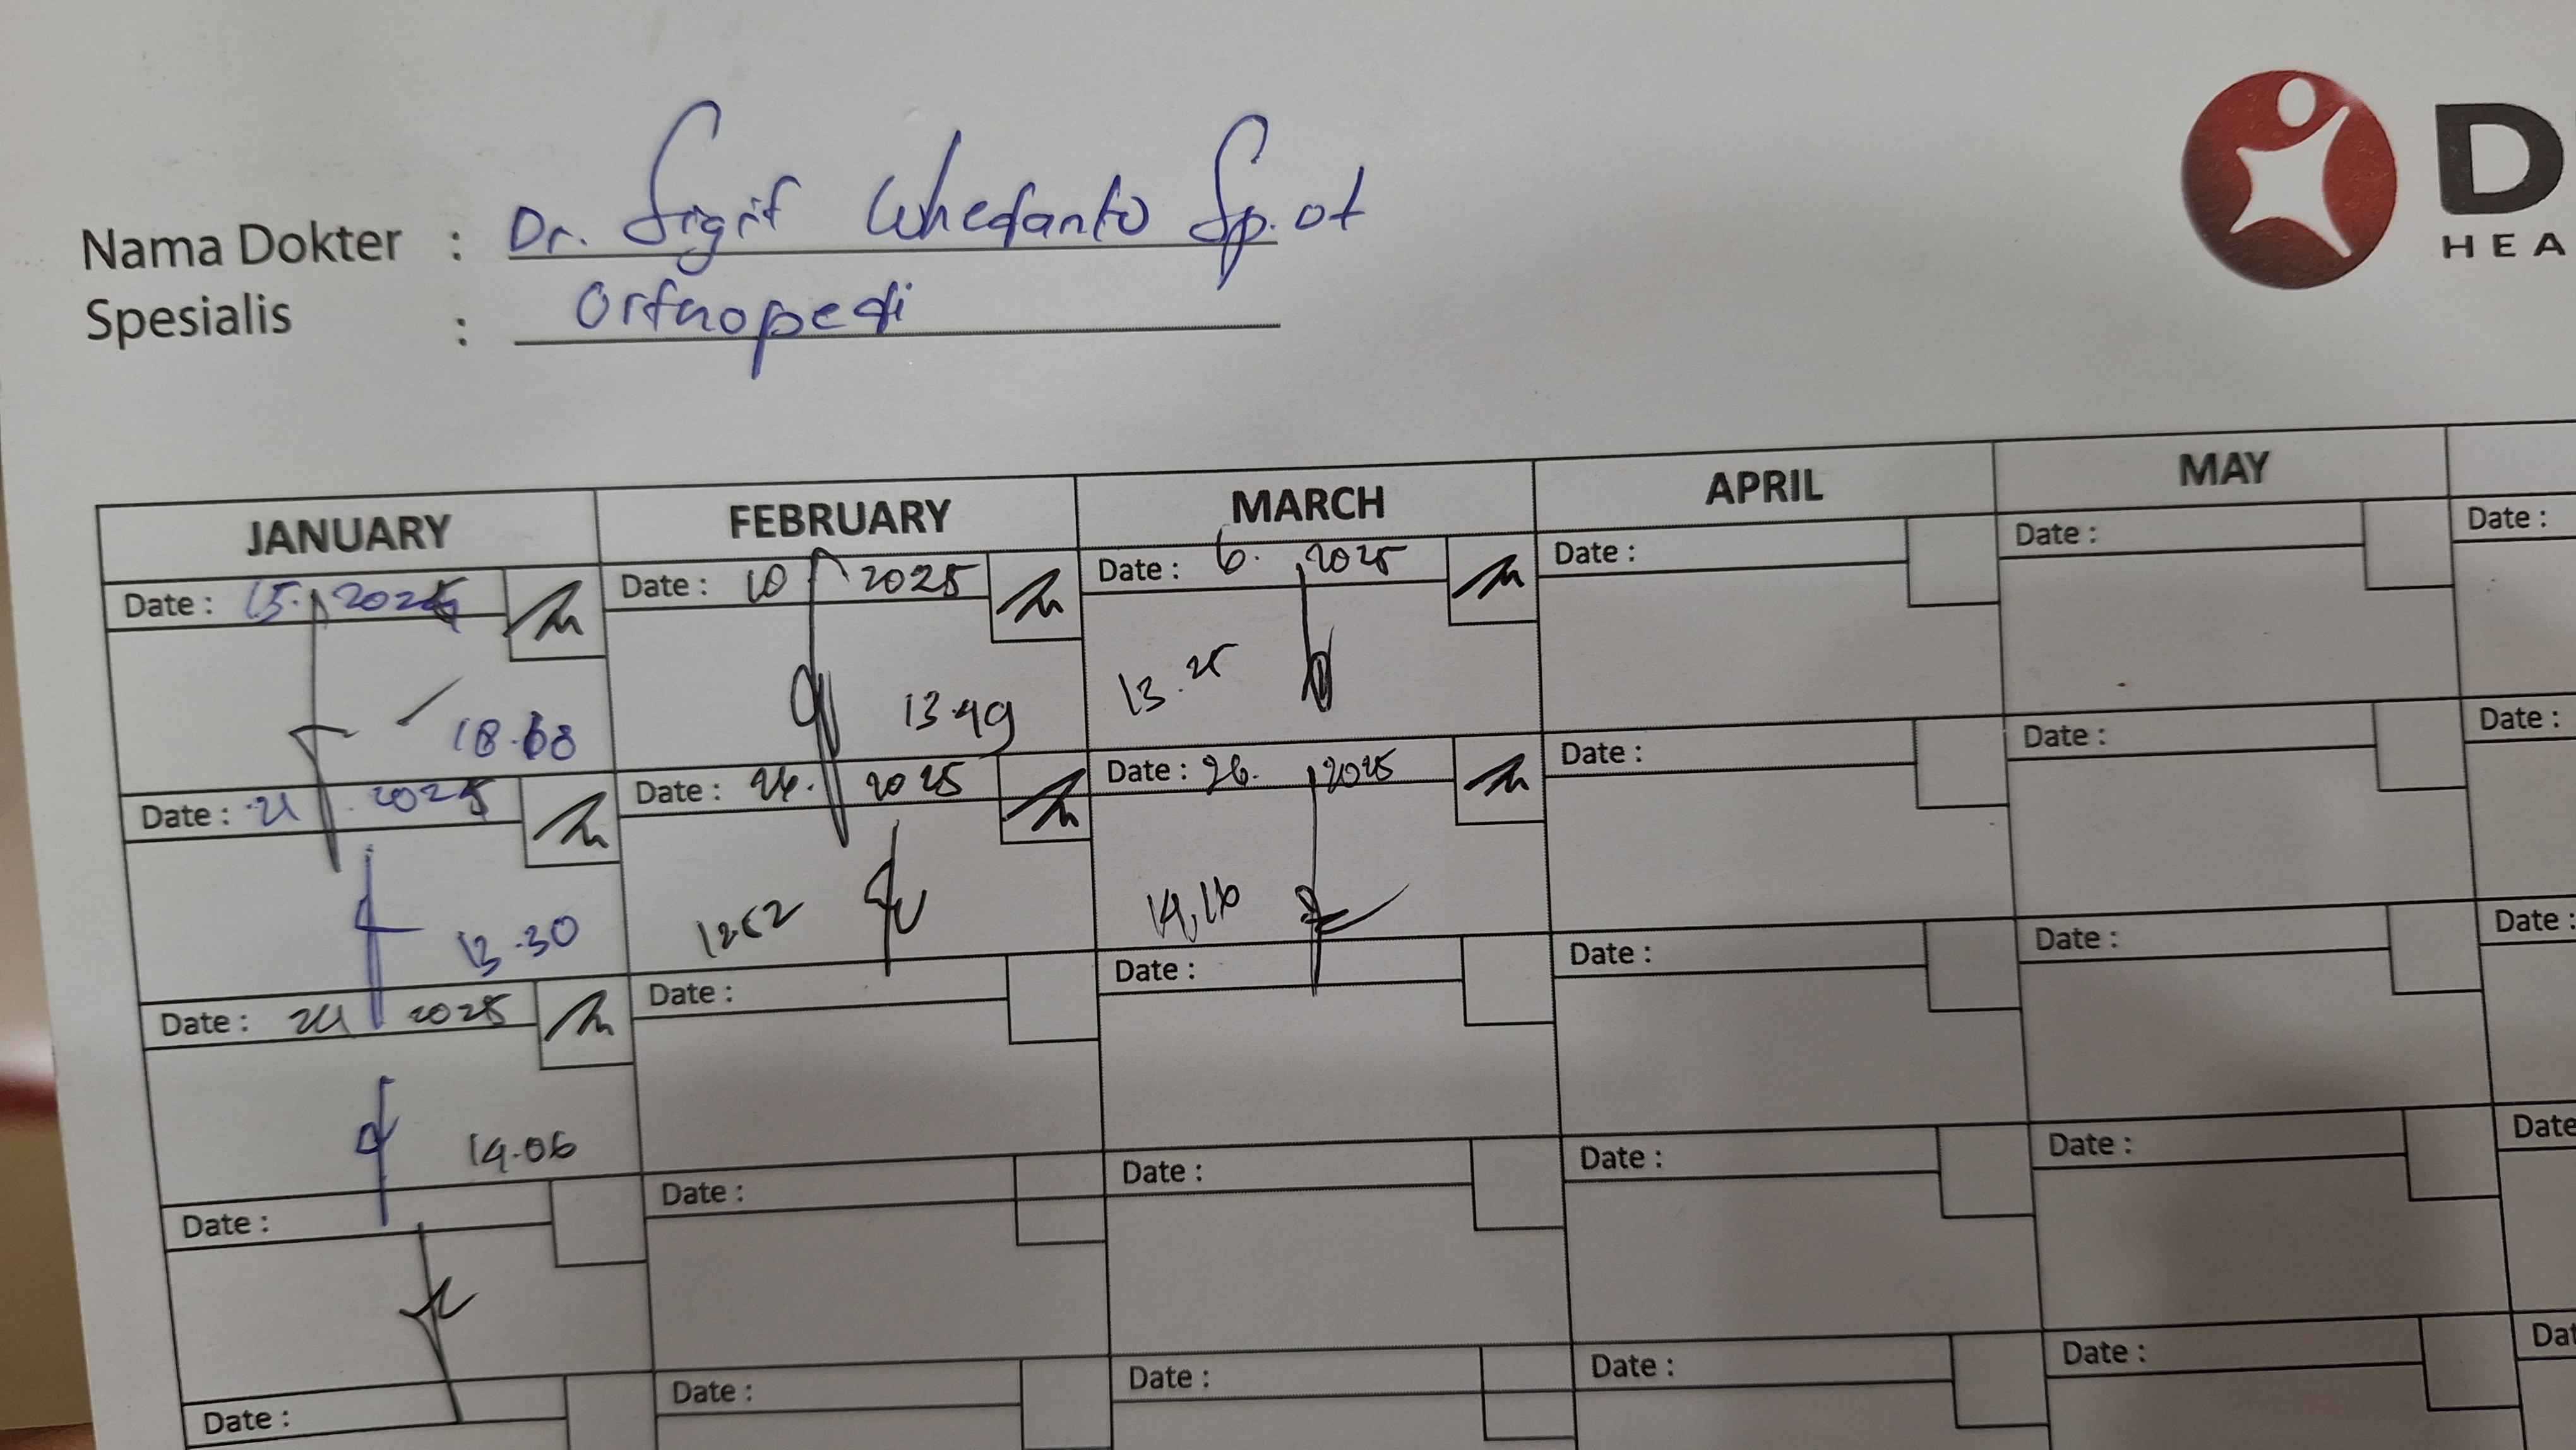 Nama Dokter : Dr. Sigit Whedanto Sp.ot
Spesialis : Orthopedi
D
HEA
JANUARY FEBRUARY MARCH APRIL MAY
Date : 15. 2025 Date : 10 2025 Date : 6. 2025 Date : Date : Date :
13.49 13.25
Date : 21 . 2025 Date : 24. 2025 Date : 26. 2025 Date : Date : Date :
13.30 14.16
Date : 24 2025 Date : Date : Date : Date : Date :
14.06
Date : Date : Date : Date : Date : Date
Date : Date : Date : Date : Date : Dat